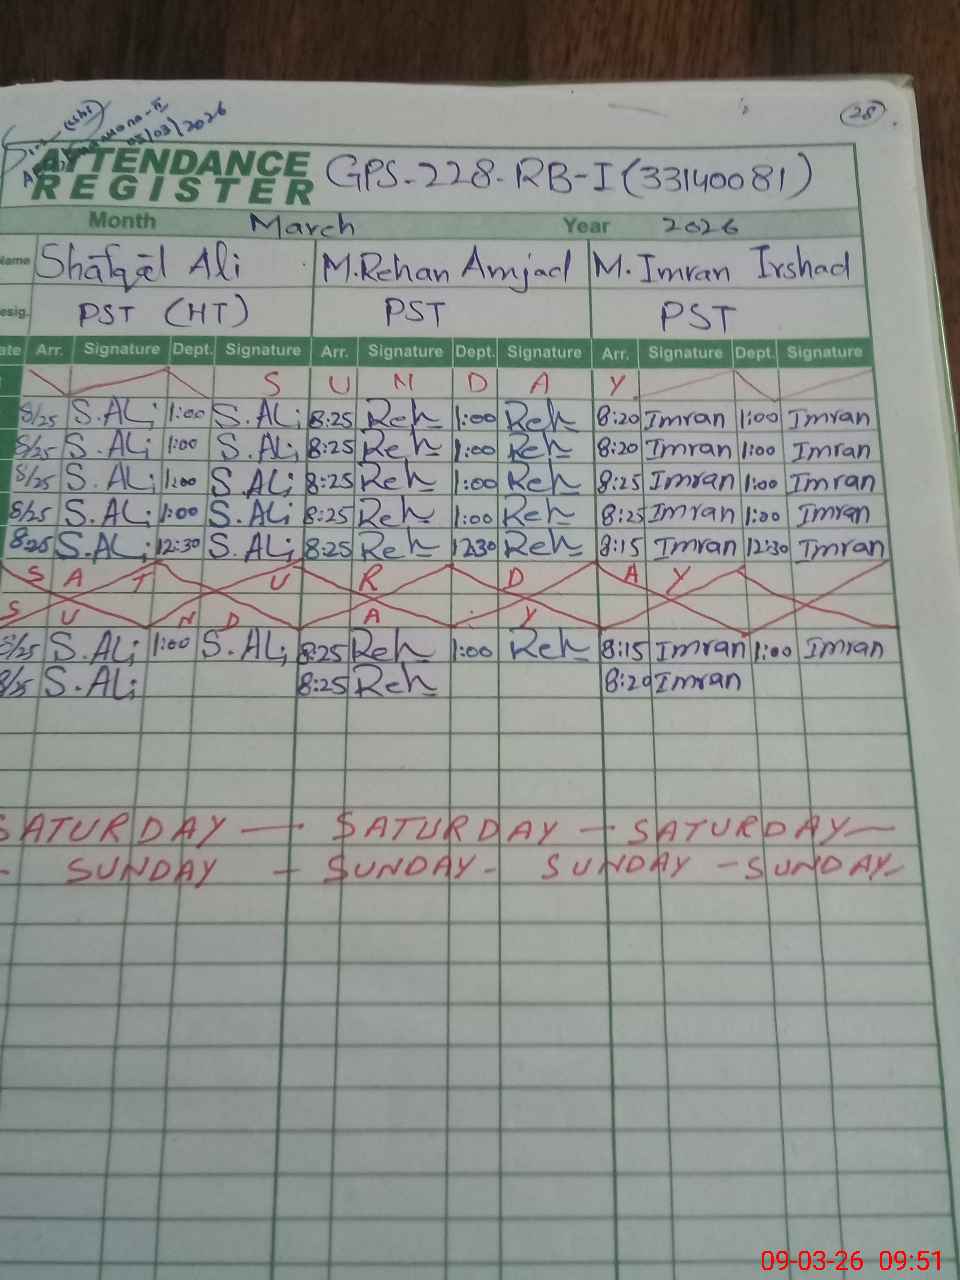 28
05/03/2026
ATTENDANCE REGISTER GPS-228-RB-I (33140081)
Month March Year 2026
Name Shafqat Ali M.Rehan Amjad M. Imran Irshad
esig. PST (HT) PST PST
ate Arr. Signature Dept. Signature Arr. Signature Dept. Signature Arr. Signature Dept. Signature
S U N D A Y
8/25 S.ALi 1:00 S.ALi 8:25 Reh 1:00 Reh 8:20 Imran 1:00 Imran
8/25 S.ALi 1:00 S.ALi 8:25 Reh 1:00 Reh 8:20 Imran 1:00 Imran
8/25 S.ALi 1:00 S.ALi 8:25 Reh 1:00 Reh 8:25 Imran 1:00 Imran
8/25 S.ALi 1:00 S.ALi 8:25 Reh 1:00 Reh 8:25 Imran 1:00 Imran
8:25 S.ALi 12:30 S.ALi 8:25 Reh 12:30 Reh 8:15 Imran 12:30 Imran
S A T U R D A Y
S U N D A Y
8/25 S.ALi 1:00 S.ALi 8:25 Reh 1:00 Reh 8:15 Imran 1:00 Imran
8/25 S.ALi 8:25 Reh 8:20 Imran
SATURDAY — SATURDAY — SATURDAY —
- SUNDAY - SUNDAY - SUNDAY - SUNDAY -
09-03-26 09:51